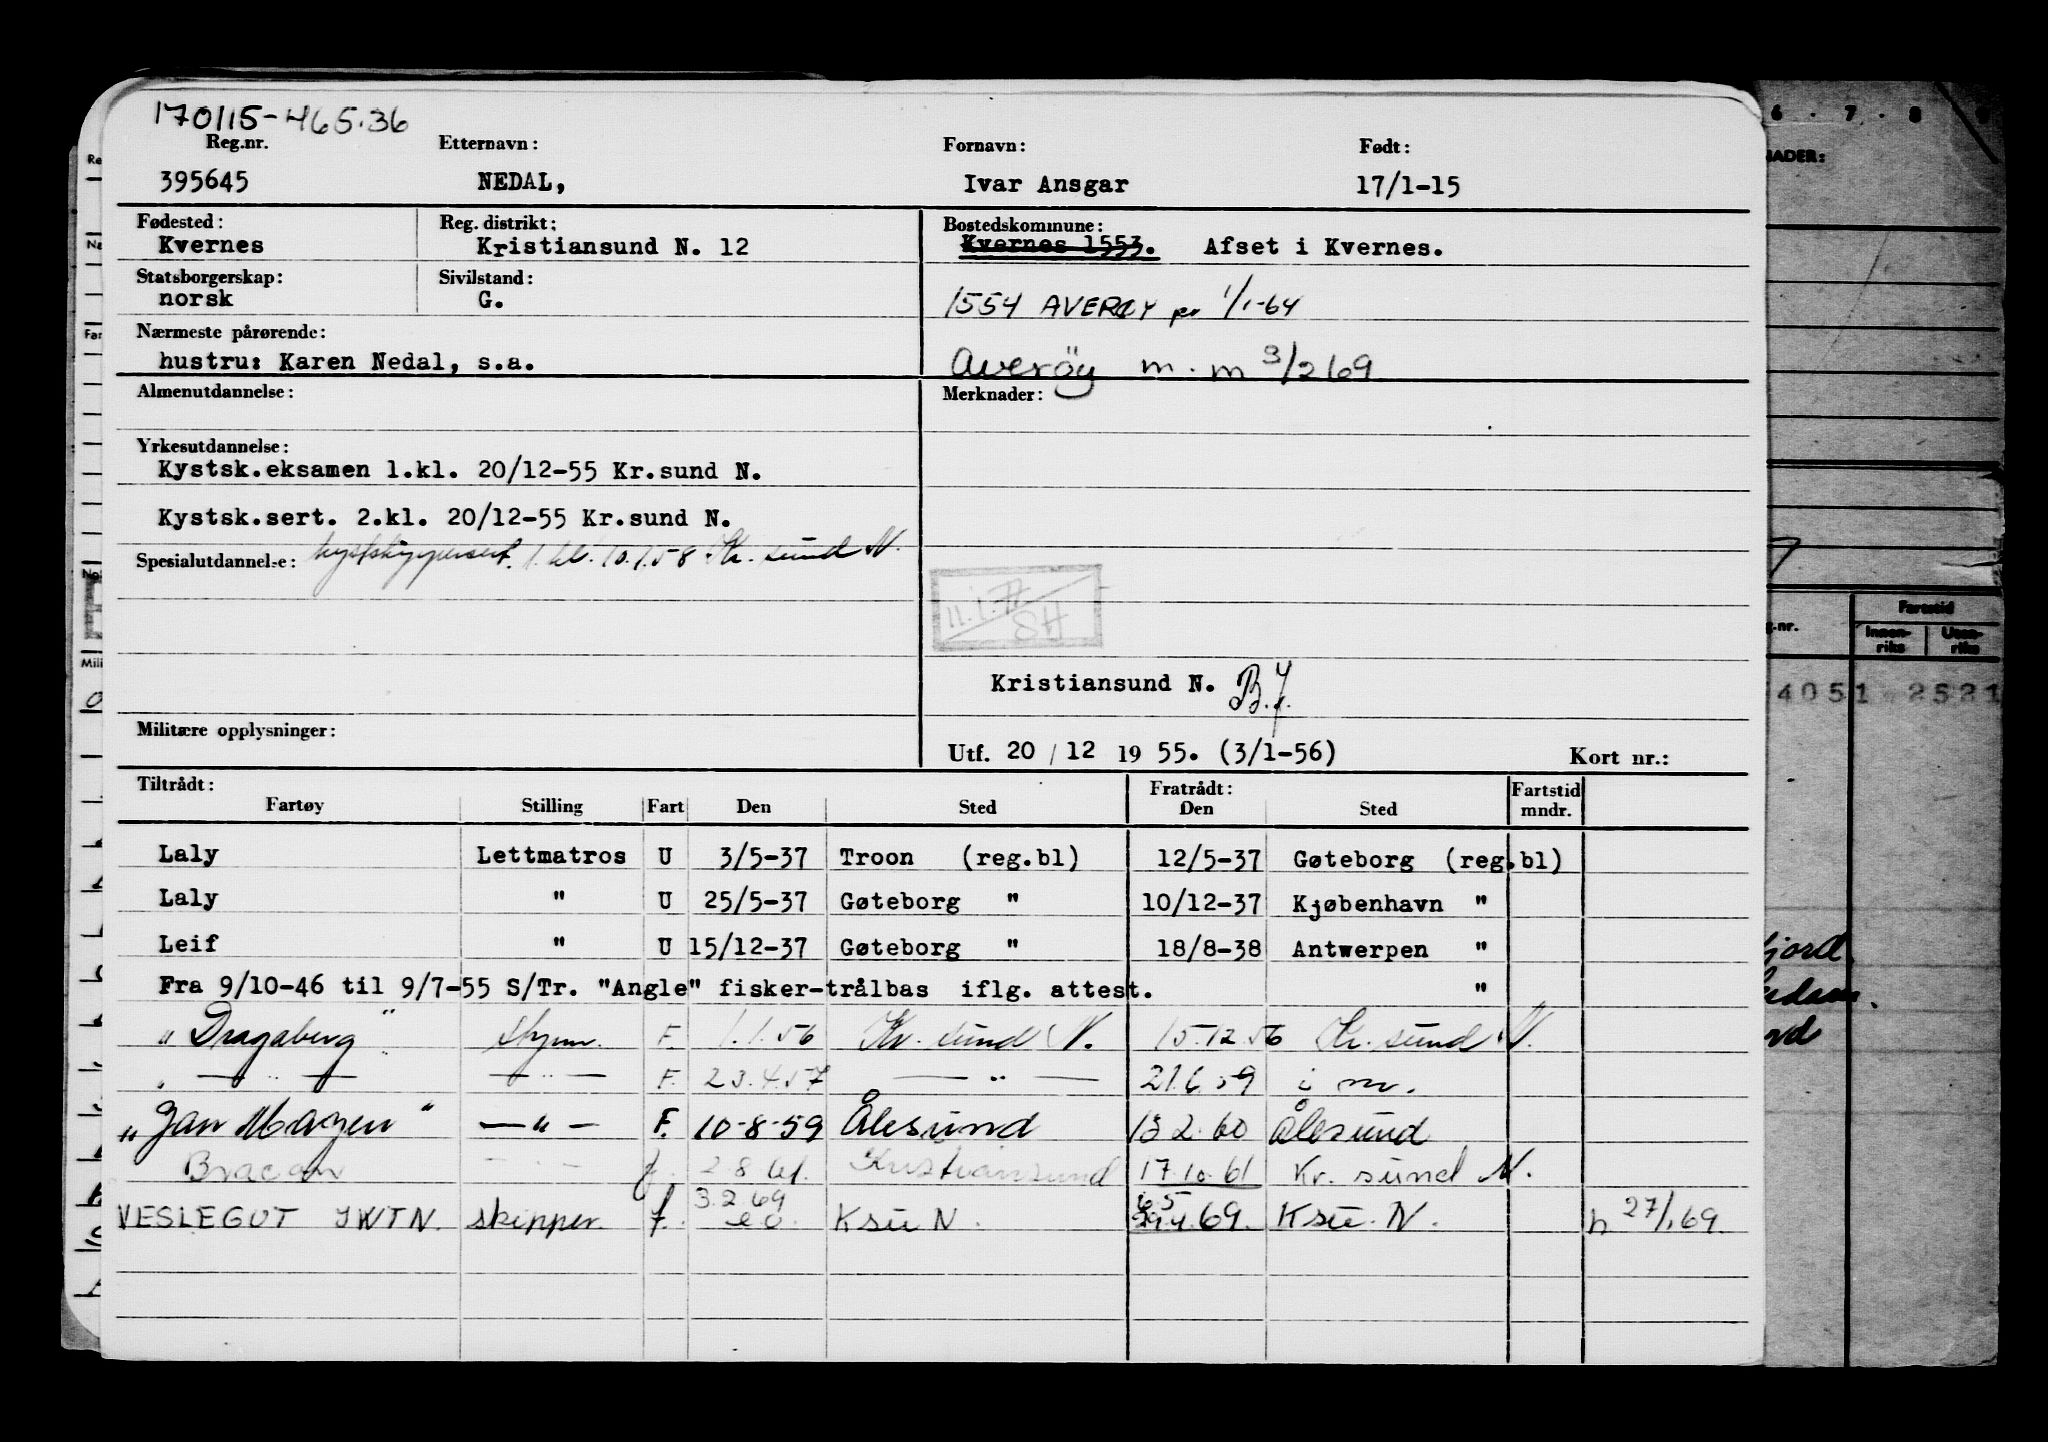 170115-465.36
Reg.nr. Etternavn: Fornavn: Født:
395645 NEDAL, Ivar Ansgar 17/1-15
Fødested: Reg. distrikt: Bostedskommune:
Kvernes Kristiansund N. 12 Kvernes 1553. Afset i Kvernes.
Statsborgerskap: Sivilstand:
norsk G. 1554 AVERØY pr 1/1-64
Nærmeste pårørende:
hustru: Karen Nedal, s.a. Averöy m.m 3/2 69
Almenutdannelse: Merknader:
Yrkesutdannelse:
Kystsk.eksamen 1.kl. 20/12-55 Kr.sund N.
Kystsk.sert. 2.kl. 20/12-55 Kr.sund N.
Spesialutdannelse: kystskippersert. 1. kl. 10.1.58 Kr. sund N.
SH
Kristiansund N. B.J.
Militære opplysninger:
Utf. 20 / 12 19 55. (3/1-56) Kort nr.:
Tiltrådt: Fratrådt: Fartstid
Fartøy Stilling Fart Den Sted Den Sted mndr.
Laly Lettmatros U 3/5-37 Troon (reg.bl) 12/5-37 Gøteborg (reg.bl)
Laly " U 25/5-37 Gøteborg " 10/12-37 Kjøbenhavn "
Leif " U 15/12-37 Gøteborg " 18/8-38 Antwerpen "
Fra 9/10-46 til 9/7-55 S/Tr. "Angle" fisker-trålbas iflg. attest. "
"Dragaberg" styrm. F. 1.1.56 Kr. sund N. 15.12.56 Kr. sund N.
— " — — " — F. 23.4.57 — " — 21.6.59 i m.
"Jan Mayen" — " — F. 10-8-59 Ålesund 13 2.60 Ålesund
Bracan — " — f. 2.8.61. Kristiansund 17.10.61 Kr. sund N.
3.2.69 6.5
VESLEGUT JWTN. skipper f. Ksu N. 69. Ksu. N. h 27/1 69.
6 . 7 . 8
NADER:
g.nr. Fartstid
Innen-riks Uten-riks
4051 2521